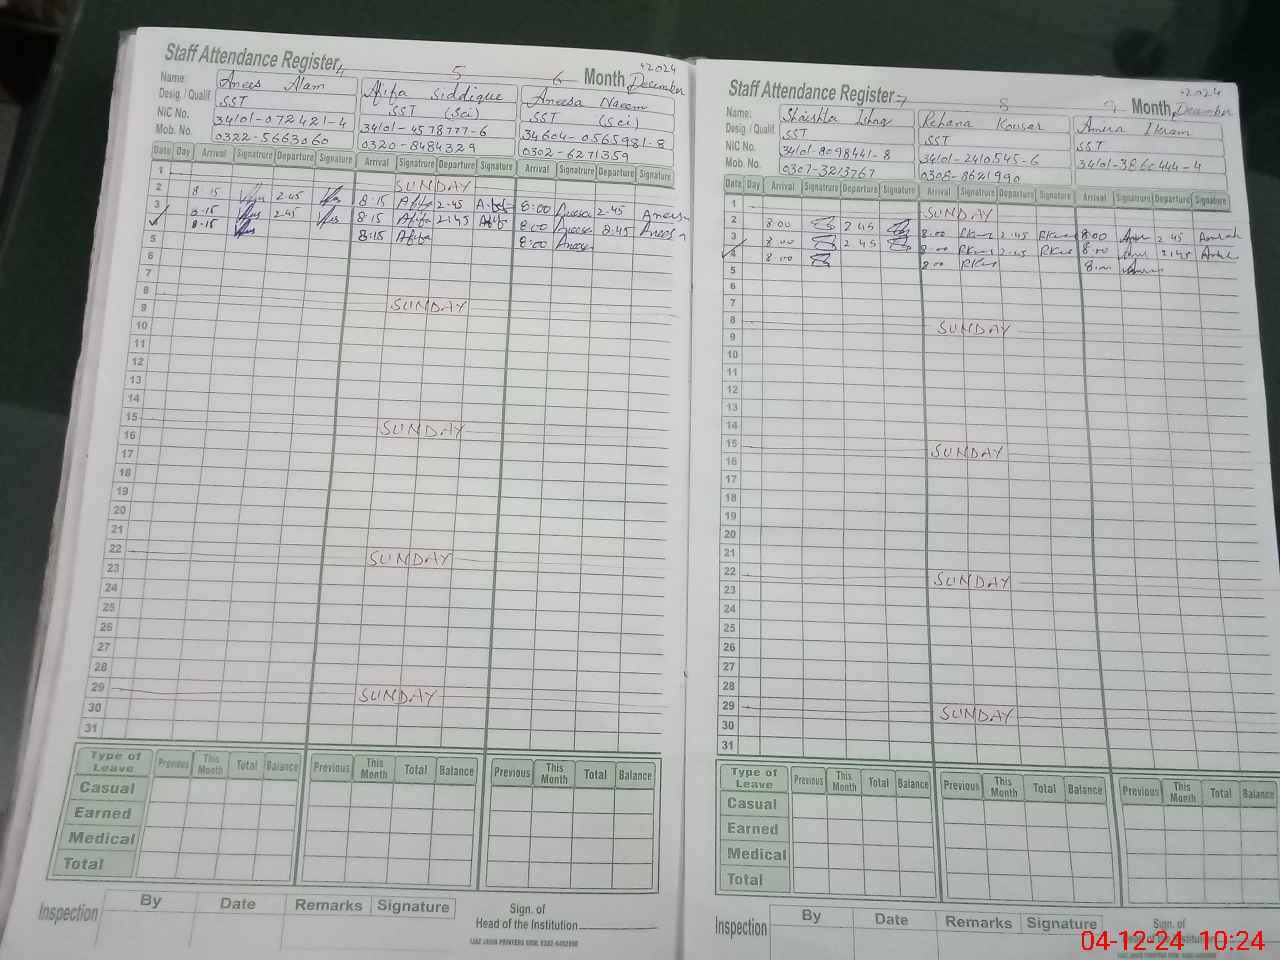 Staff Attendance Register 4 5 6 Month December 2024
Name: Anees Alam Afifa Siddique Aneesa Naeem
Desig. / Qualif SST SST (Sci) SST (Sci)
NIC No. 34101-072421-4 34101-4578777-6 34604-0565981-8
Mob. No. 0322-5663060 0320-8484329 0302-6271359
Date Day Arrival Signatrure Departure Signature Arrival Signatrure Departure Signature Arrival Signatrure Departure Signature
1 SUNDAY
2 8:15 2:45 8:15 Afifa 2:45 Afifa 8:00 Aneesa 2:45 Aneesa
3 8:15 2:45 8:15 Afifa 2:45 Afifa 8:00 Aneesa 8:45 Aneesa
8:15 8:15 Afifa 8:00 Aneesa
5
6
7
8 SUNDAY
9
10
11
12
13
14
15 SUNDAY
16
17
18
19
20
21
22 SUNDAY
23
24
25
26
27
28
29 SUNDAY
30
31
Type of Leave Previous This Month Total Balance Previous This Month Total Balance Previous This Month Total Balance
Casual
Earned
Medical
Total
Inspection By Date Remarks Signature Sign. of
Head of the Institution
Staff Attendance Register 7 8 9 Month December 2024
Name: Shaishta Ishaq Rehana Kousar Amira Ikram
Desig. / Qualif SST SST SST
NIC No. 34101-8098441-8 34101-2410545-6 34101-3860444-4
Mob. No. 0307-3213767 0306-8621990
Date Day Arrival Signatrure Departure Signature Arrival Signatrure Departure Signature Arrival Signatrure Departure Signature
1 SUNDAY
2 8:00 2:45 8:00 RKous 2:45 RKous 8:00 2:45
3 8:00 2:45 8:00 RKous 2:45 RKous 8:00 2:45
4 8:00 8:00 RKous 8:00
5
6
7
8 SUNDAY
9
10
11
12
13
14
15 SUNDAY
16
17
18
19
20
21
22 SUNDAY
23
24
25
26
27
28
29 SUNDAY
30
31
Type of Leave Previous This Month Total Balance Previous This Month Total Balance Previous This Month Total Balance
Casual
Earned
Medical
Total
Inspection By Date Remarks Signature Sign. of
Head of the Institution
04-12-24 10:24